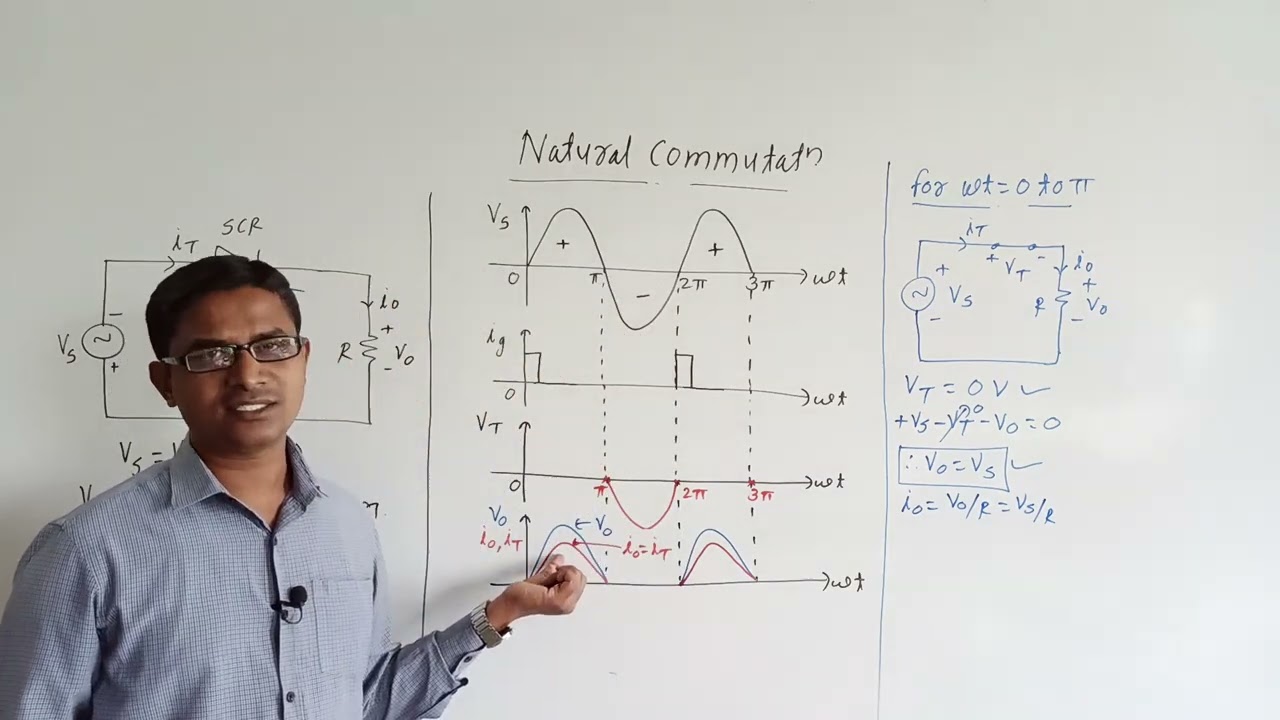 Natural Commutatn
SCR
iT
Vs
R
io
+
Vo
-
-
+
Vs =
Vs
+
-
+
0
π
2π
3π
ωt
ig
0
ωt
VT
0
π
2π
3π
ωt
Vo
io, iT
← Vo
io = iT
ωt
for ωt = 0 to π
iT
+ VT -
+
Vs
-
io
R
+
Vo
-
VT = 0 V ✓
+Vs - VT⁰ - Vo = 0
∴ Vo = Vs ✓
io = Vo/R = Vs/R